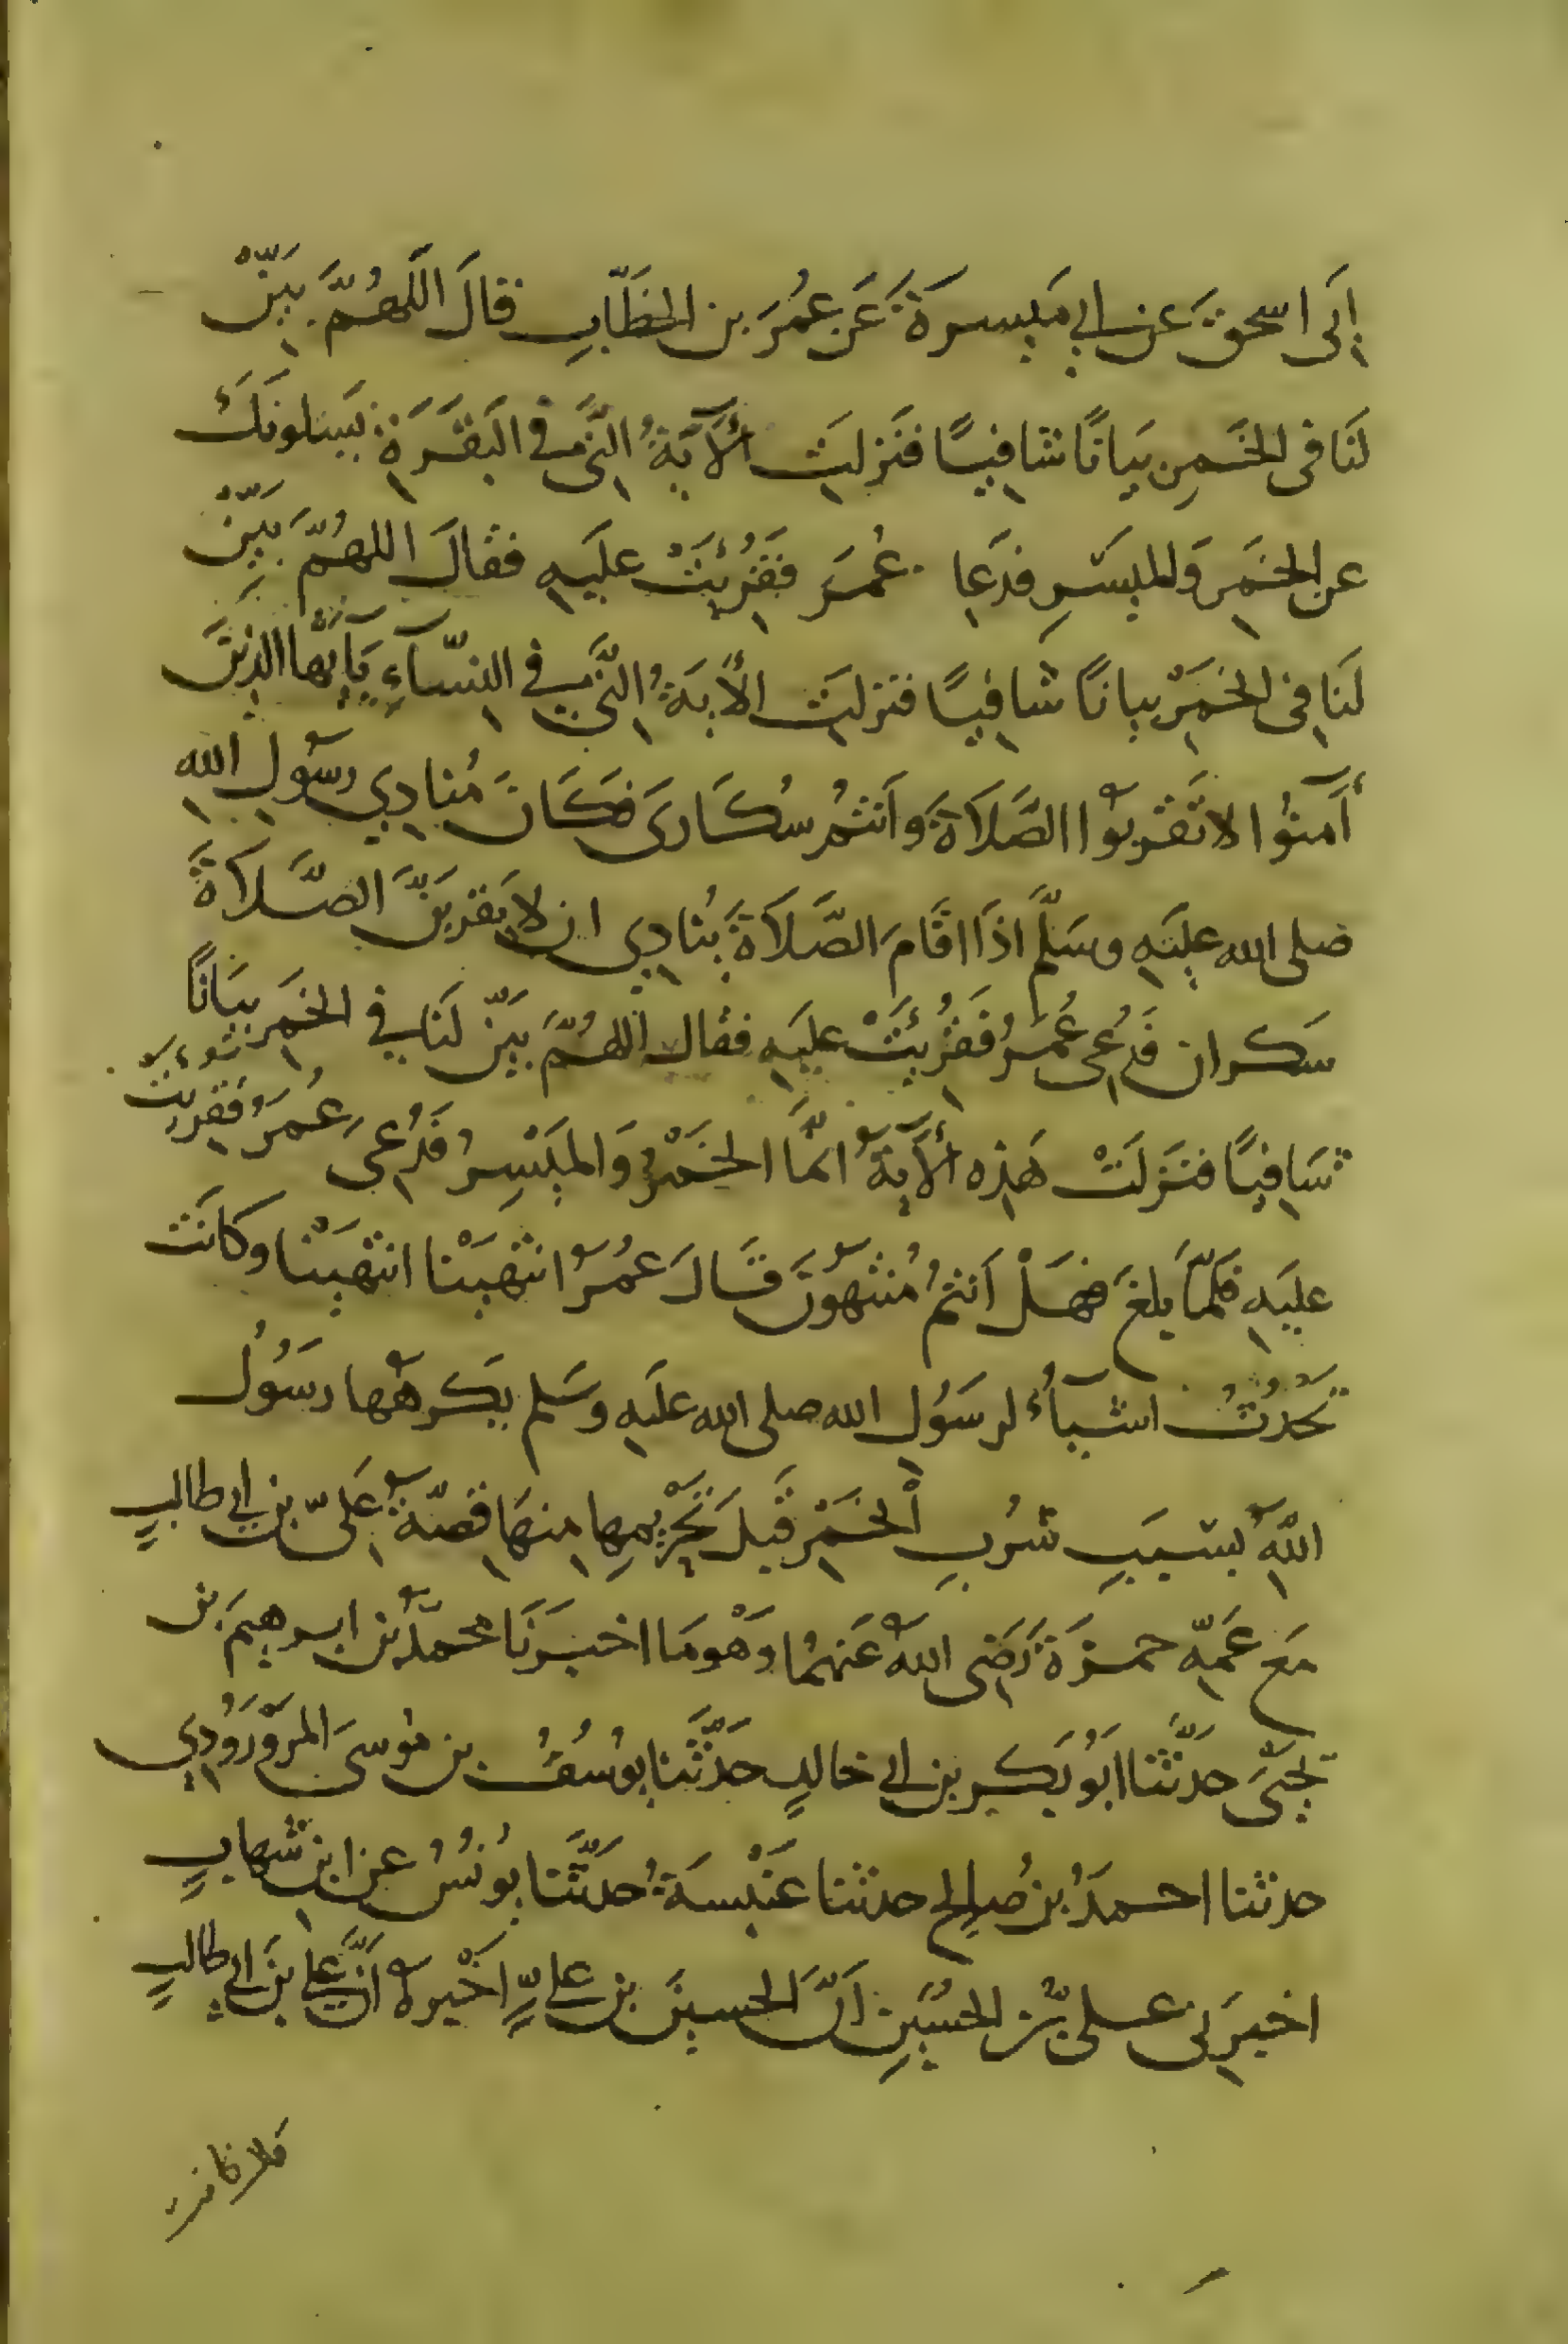 اَبى اسحقَ عن ابي مَيسرةَ عَن عُمَرَ بن الخطَّابِ قالَ اللَّهُمَّ بَيِّنْ
لنَا فى الخَمرِ بيَانًا شافِيًا فنَزلتِ الآيَةُ التى فى البَقَرَةِ يَسئلونَكَ
عن الخَمرِ وَالميسَرِ فدُعِا عُمَرُ فقُرِئَتْ عليَهِ فقالَ اللهُمَّ بَيِّنْ
لنَا فى الخَمْرِ بيانًا شَافِيًا فنزلتِ الأيَةُ التى فى النِسَّاءِ يَآيُّها الذِينَ
أآمنُوا لا تَقْربُوا الصَّلَاةَ وَاَنتمُ سُكَارىَ فكَانَ مُنادِي رسَوُلِ اللهِ
صلى الله عليَهِ وسَلَّمَ اذَا اقَامَ الصَّلَاةَ يُنادِي ان لا يقربَنَّ الصَّلاَةَ
سَكران فَدُعِى عُمَرُ فَقُرِئَتْ عليَهِ فقال اللهُمَّ بَيِّن لنَا في الخمَرِ بيَانًا
شَافِيًا فنَزلَتْ هَذِه الآيَةُ انَّمَا الخَمْرُ وَالميَسِرُ فَدُعِىَ عُمَرُ فقرِئت
عليَهِ فلمَّا بلغَ فهَلْ اَنتمُ مُنتَهوُنَ قَالَ عُمرُ انتهَيْنا انتهَيْنا وكانَت
تحَدُثُ اشيآءُ لرسَوُلِ الله صلى الله عليَهِ وسَلم يكرَهُها رسَوُلُ
اللَّهِ بسَببِ شُربِ الخَمْرِ قَبلَ تحْرِيمِها مِنهَا قصّةُ عَلىِّ بن ابي طالبٍ
مَعَ عَمِّهِ حمزَةَ رَضِى اللهُ عَنهُما وَهْوَ مَا اخبَرَنَا محمَّدُ بن ابرهيِمَ بن
يحيىَ حدَّثنا ابَوُ بَكرِ بن ابي خالدٍ حَدَّثَنا يوُسُفُ بن موُسىَ المرْوَرُّودِي
حدثنا احمدُ بن صُالِح حدثنا عَنْبسَةُ حَدَّثَنا يوُنُسُ عن ابنِ شهابٍ
اخبرَنِى على بن الحسُيِن اَنَّ الحسينَ بن علىٍّ اخْبرهُ انَّ على بن ابي طالبٍ